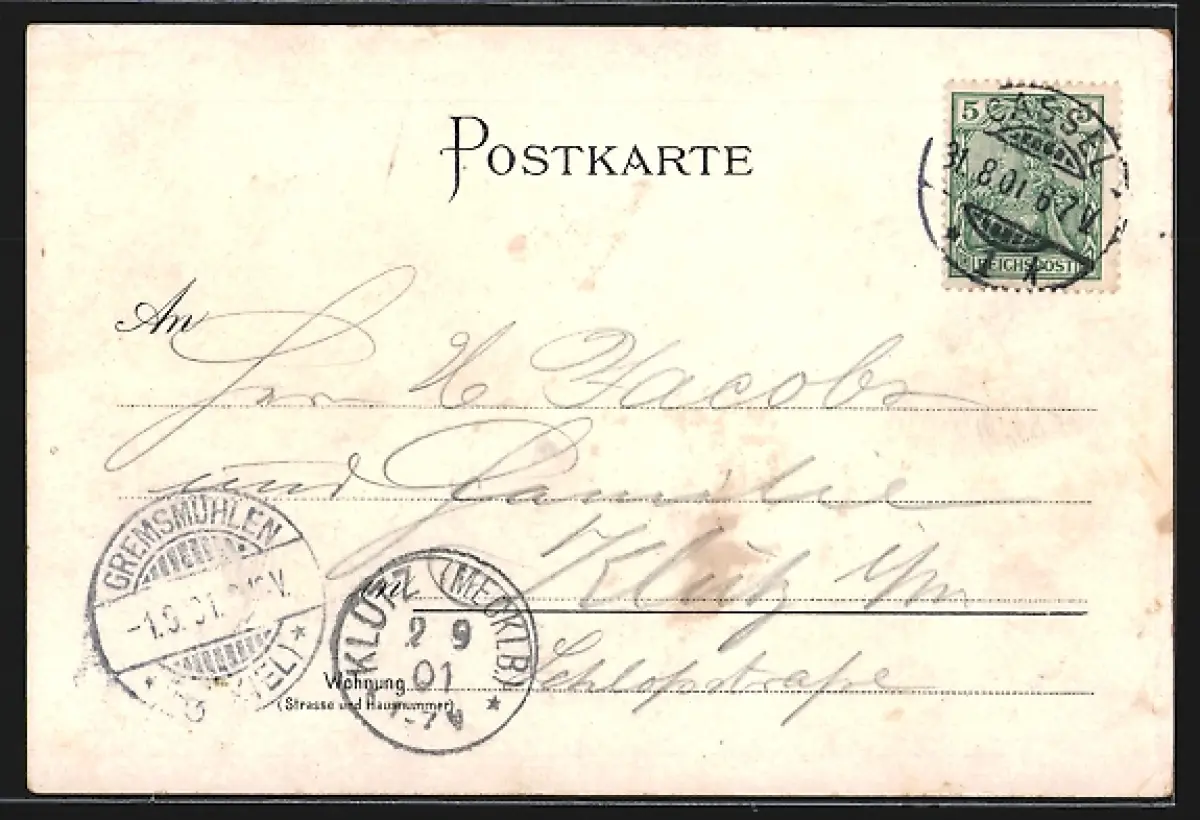 POSTKARTE
5
CASSEL
31.8.01 6-7 V.
* 1 k
REICHSPOST
An
Herrn H Jacobs
und Familie
Klütz i/m
GREMSMÜHLEN
-1.9.01. V.
in KLÜTZ (MECKLB)
2 9
01
-7 V
*
Wohnung
(Strasse und Hausnummer)
Schloßstraße